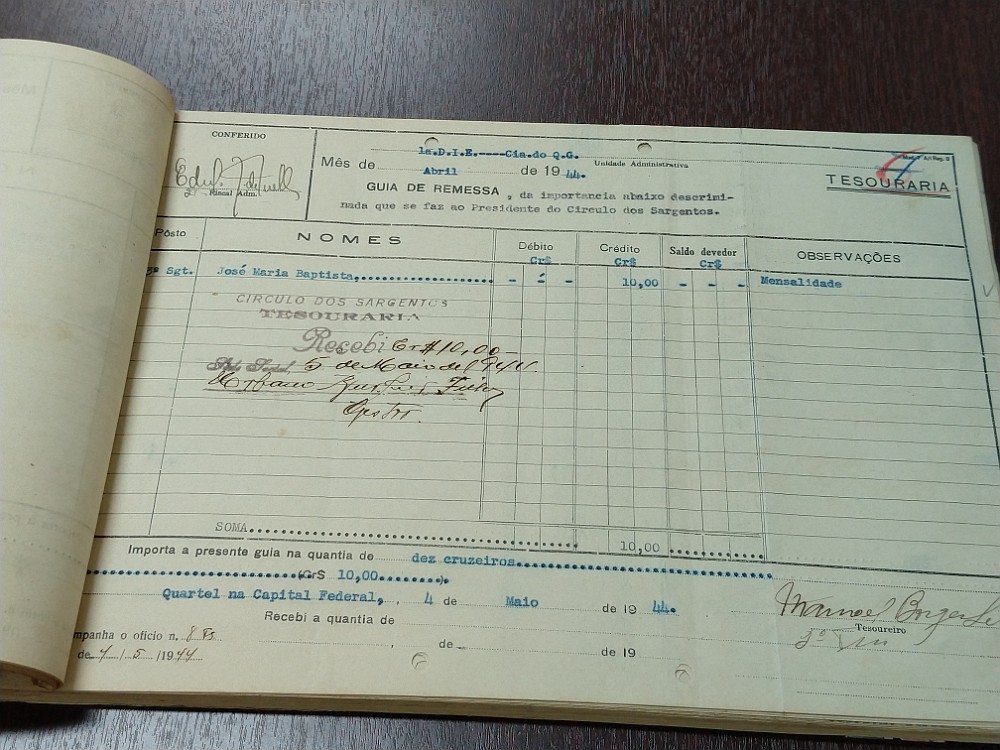 CONFERIDO
Fiscal Adm.
1a.D.I.E.----Cia.do Q.G.
Unidade Administrativa
Mês de Abril de 1944.
GUIA DE REMESSA, da importancia abaixo descrimi-
nada que se faz ao Presidente do Circulo dos Sargentos.
TESOURARIA
Pôsto NOMES Débito Crédito Saldo devedor OBSERVAÇÕES
Cr$ Cr$ Cr$
3º Sgt. José Maria Baptista, - - - 10,00 - - - Mensalidade
CIRCULO DOS SARGENTOS
TESOURARIA
Recebi Cr$10,00
5 de Maio de 1944.
SOMA 10,00
Importa a presente guia na quantia de dez cruzeiros
(Cr$ 10,00........).
Quartel na Capital Federal, , 4 de Maio de 19 44.
Recebi a quantia de
mpanha o oficio n. , de de 19
de 4 / 5 / 1944
Manoel
Tesoureiro
2º Ten